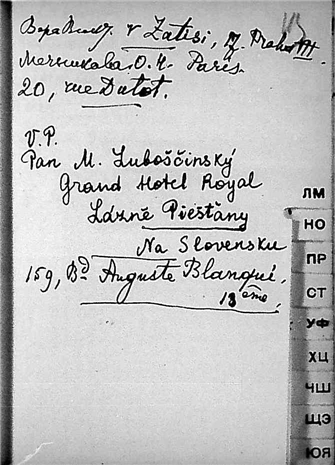 Вера Влад. v Zátisí, Praha III.
Мечникова О. Н. Paris.
20, rue Dutot.
V. P.
Pan M. Luboščinský
Grand Hotel Royal
Lázně Piešťany
Na Slovensku
159, Bd Auguste Blanqui,
13 ème
ЛМ
НО
ПР
СТ
УФ
ХЦ
ЧШ
ЩЭ
ЮЯ